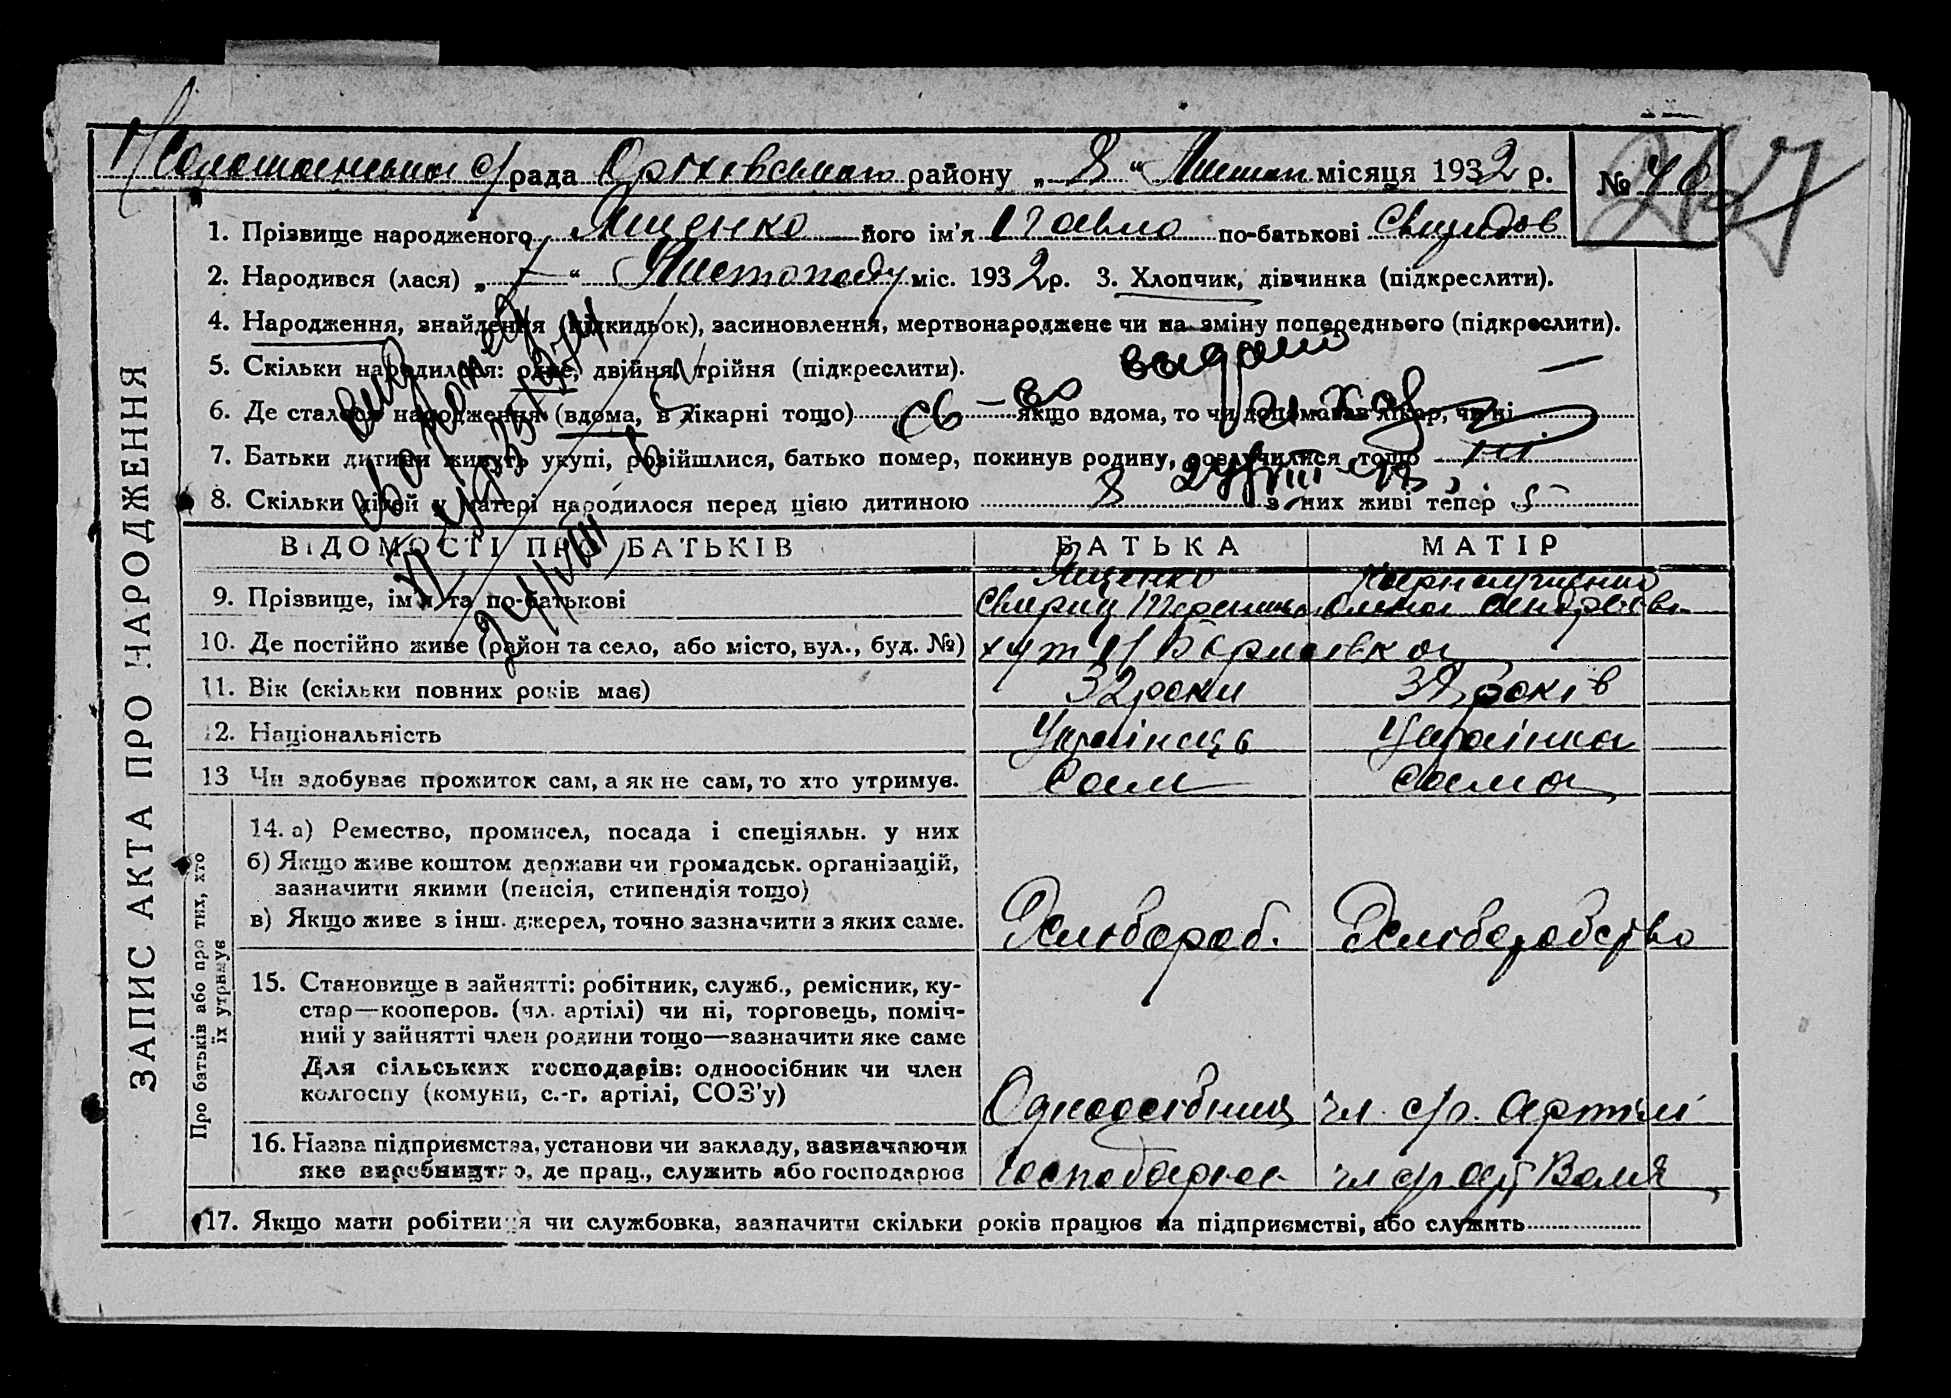 рада району „ 8 “ місяця 1932 р. №
1. Прізвище народженого Ященко його ім'я Павло по-батькові
2. Народився (лася) „ 7 “ Листопаду міс. 1932 р. 3. Хлопчик, дівчинка (підкреслити).
4. Народження, знайдення (підкидьок), засиновлення, мертвонароджене чи на зміну попереднього (підкреслити).
5. Скільки народилося: одне, двійня, трійня (підкреслити).
6. Де сталося народження (вдома, в лікарні тощо) якщо вдома, то чи допомагав лікар, чи ні
7. Батьки дитини живуть укупі, розійшлися, батько помер, покинув родину, розлучилися тощо
8. Скільки дітей у матері народилося перед цією дитиною 8 з них живі тепер 5
ЗАПИС АКТА ПРО НАРОДЖЕННЯ
ВІДОМОСТІ ПРО БАТЬКІВ БАТЬКА МАТІР
9. Прізвище, ім'я та по-батькові Ященко
10. Де постійно живе (район та село, або місто, вул., буд. №) хут
11. Вік (скільки повних років має) 32 роки років
12. Національність Українець Українка
13 Чи здобуває прожиток сам, а як не сам, то хто утримує. Сам сама
Про батьків або про тих, хто їх утримує
14. а) Ремество, промисел, посада і спеціяльн. у них
б) Якщо живе коштом держави чи громадськ. організацій,
зазначити якими (пенсія, стипендія тощо)
в) Якщо живе з інш. джерел, точно зазначити з яких саме. Хлібороб. Хліборобство
15. Становище в зайнятті: робітник, служб., ремісник, ку-
стар—кооперов. (чл. артілі) чи ні, торговець, поміч-
ний у зайнятті член родини тощо—зазначити яке саме
Для сільських господарів: одноосібник чи член
колгоспу (комуни, с.-г. артілі, СОЗ'у) Одноосібник чл. с/г. артілі
16. Назва підприємства, установи чи закладу, зазначаючи
яке виробництво, де прац., служить або господарює господарює чл с/г арт Воля
17. Якщо мати робітниця чи службовка, зазначити скільки років працює на підприємстві, або служить